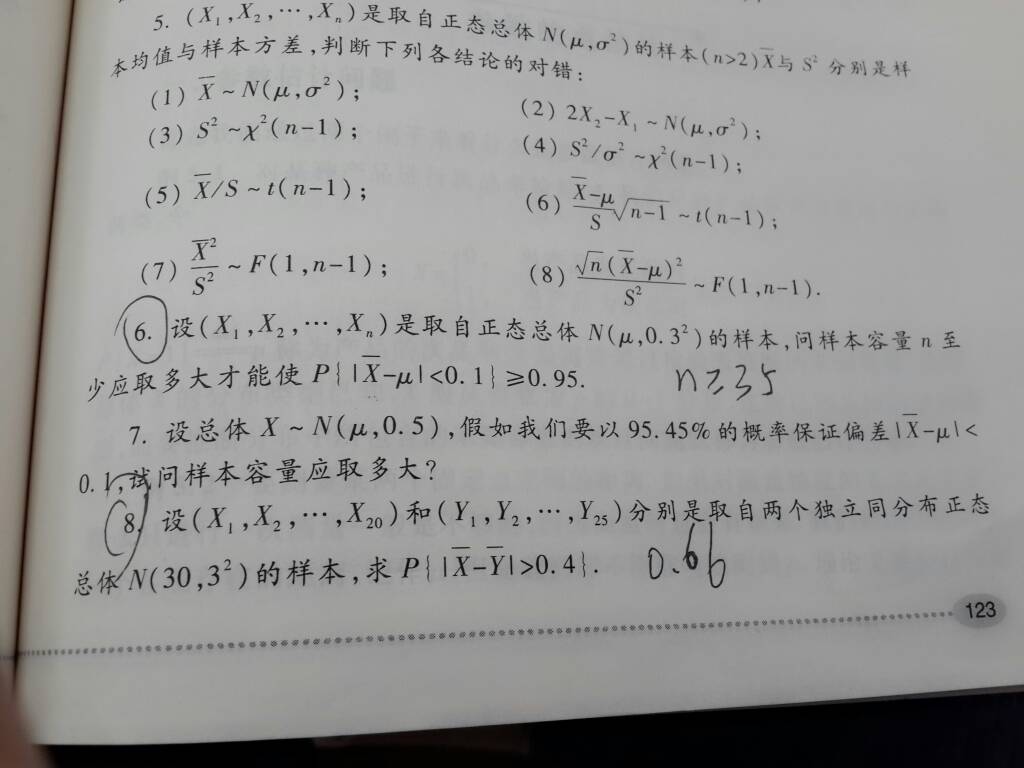 5. (X₁,X₂,…,Xₙ)是取自正态总体N(μ,σ²)的样本(n>2)X̄与 S² 分别是样
本均值与样本方差,判断下列各结论的对错:
(1) X̄ ~ N(μ,σ²);
(2) 2X₂-X₁ ~ N(μ,σ²);
(3) S² ~ χ²(n-1);
(4) S²/σ² ~ χ²(n-1);
(5) X̄/S ~ t(n-1);
(6) (X̄-μ)/S √(n-1) ~ t(n-1);
(7) X̄²/S² ~ F(1,n-1);
(8) √n(X̄-μ)²/S² ~ F(1,n-1).
6. 设(X₁,X₂,…,Xₙ)是取自正态总体 N(μ,0.3²)的样本,问样本容量 n 至
少应取多大才能使 P{|X̄-μ|<0.1}≥0.95. n≥35
7. 设总体 X ~ N(μ,0.5),假如我们要以95.45%的概率保证偏差|X̄-μ|<
0.1,试问样本容量应取多大?
8. 设(X₁,X₂,…,X₂₀)和(Y₁,Y₂,…,Y₂₅)分别是取自两个独立同分布正态
总体N(30,3²)的样本,求P{|X̄-Ȳ|>0.4}. 0.66
123